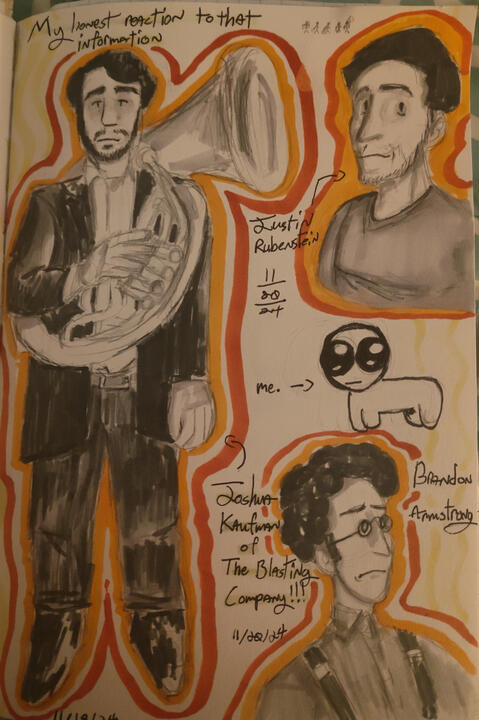 My honest reaction to that
information
Justin
Rubenstein
11
20
24
me. →
Joshua
Kaufman
of
The Blasting
Company!!!
11/20/24
Brandon
Armstrong
11/19/24